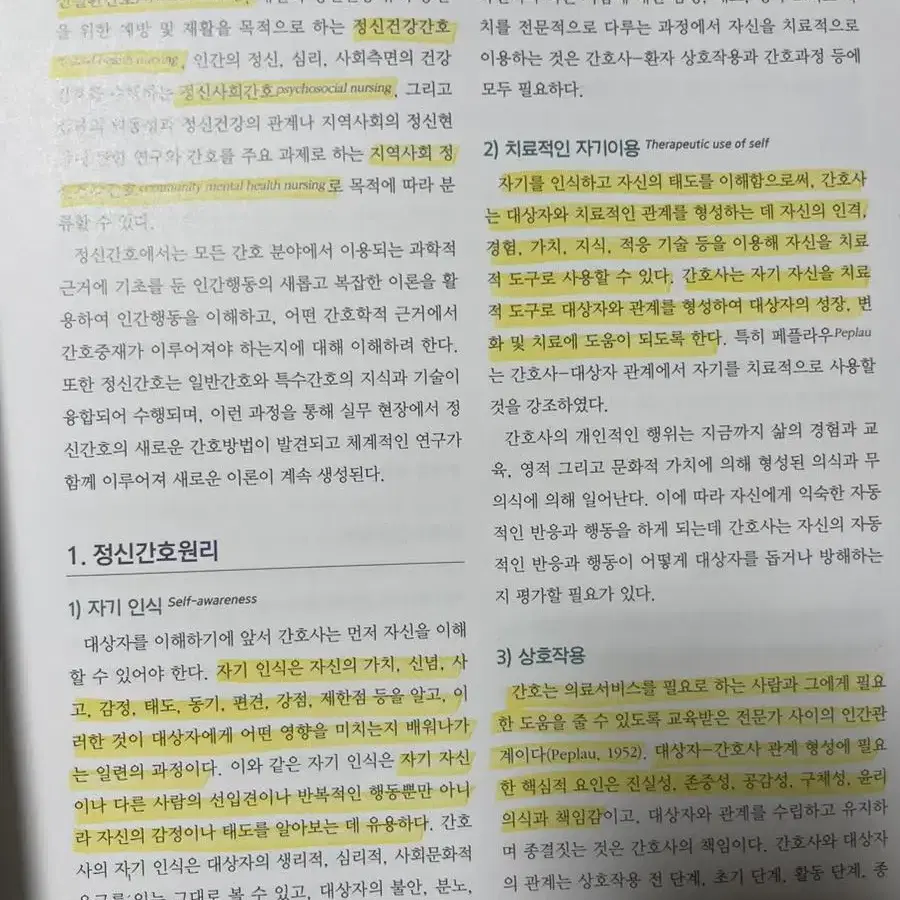 을 위한 예방 및 재활을 목적으로 하는 정신건강간호
health nursing, 인간의 정신, 심리, 사회측면의 건강
정신사회간호psychosocial nursing, 그리고
정신건강의 관계나 지역사회의 정신현
연구와 간호를 주요 과제로 하는 지역사회 정
community mental health nursing로 목적에 따라 분
류할 수 있다.
정신간호에서는 모든 간호 분야에서 이용되는 과학적
근거에 기초를 둔 인간행동의 새롭고 복잡한 이론을 활
용하여 인간행동을 이해하고, 어떤 간호학적 근거에서
간호중재가 이루어져야 하는지에 대해 이해하려 한다.
또한 정신간호는 일반간호와 특수간호의 지식과 기술이
융합되어 수행되며, 이런 과정을 통해 실무 현장에서 정
신간호의 새로운 간호방법이 발견되고 체계적인 연구가
함께 이루어져 새로운 이론이 계속 생성된다.
1. 정신간호원리
1) 자기 인식 Self-awareness
대상자를 이해하기에 앞서 간호사는 먼저 자신을 이해
할 수 있어야 한다. 자기 인식은 자신의 가치, 신념, 사
고, 감정, 태도, 동기, 편견, 강점, 제한점 등을 알고, 이
러한 것이 대상자에게 어떤 영향을 미치는지 배워나가
는 일련의 과정이다. 이와 같은 자기 인식은 자기 자신
이나 다른 사람의 선입견이나 반복적인 행동뿐만 아니
라 자신의 감정이나 태도를 알아보는 데 유용하다. 간호
사의 자기 인식은 대상자의 생리적, 심리적, 사회문화적
있는 그대로 볼 수 있고, 대상자의 불안, 분노,
치를 전문적으로 다루는 과정에서 자신을 치료적으로
이용하는 것은 간호사-환자 상호작용과 간호과정 등에
모두 필요하다.
2) 치료적인 자기이용 Therapeutic use of self
자기를 인식하고 자신의 태도를 이해함으로써, 간호사
는 대상자와 치료적인 관계를 형성하는 데 자신의 인격,
경험, 가치, 지식, 적응 기술 등을 이용해 자신을 치료
적 도구로 사용할 수 있다. 간호사는 자기 자신을 치료
적 도구로 대상자와 관계를 형성하여 대상자의 성장, 변
화 및 치료에 도움이 되도록 한다. 특히 페플라우Peplau
는 간호사-대상자 관계에서 자기를 치료적으로 사용할
것을 강조하였다.
간호사의 개인적인 행위는 지금까지 삶의 경험과 교
육, 영적 그리고 문화적 가치에 의해 형성된 의식과 무
의식에 의해 일어난다. 이에 따라 자신에게 익숙한 자동
적인 반응과 행동을 하게 되는데 간호사는 자신의 자동
적인 반응과 행동이 어떻게 대상자를 돕거나 방해하는
지 평가할 필요가 있다.
3) 상호작용
간호는 의료서비스를 필요로 하는 사람과 그에게 필요
한 도움을 줄 수 있도록 교육받은 전문가 사이의 인간관
계이다(Peplau, 1952). 대상자-간호사 관계 형성에 필요
한 핵심적 요인은 진실성, 존중성, 공감성, 구체성, 윤리
의식과 책임감이고, 대상자와 관계를 수립하고 유지하
며 종결짓는 것은 간호사의 책임이다. 간호사와 대상자
의 관계는 상호작용 전 단계, 초기 단계, 활동 단계, 종